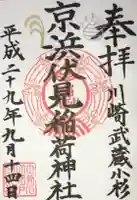 奉拝
川崎武蔵小杉
京浜伏見稲荷神社
平成二十九年九月十四日